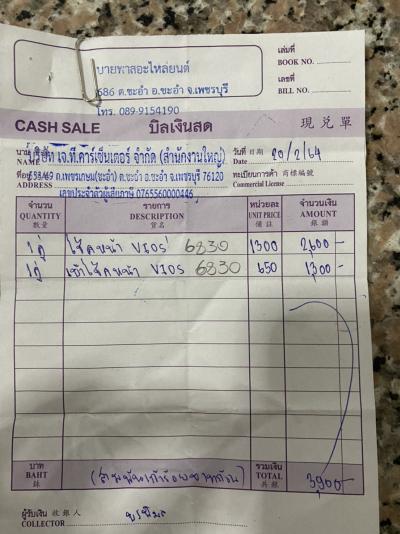 เล่มที่
BOOK NO.
บายพาสอะไหล่ยนต์
686 ต.ชะอำ อ.ชะอำ จ.เพชรบุรี
เลขที่
BILL NO.
โทร. 089-9154190
CASH SALE บิลเงินสด 現兌單
นาม
NAME บริษัท เจ.ที.คาร์เซ็นเตอร์ จำกัด (สำนักงานใหญ่) วันที่ 日期 20/2/64
Date
ที่อยู่ 658/69 ถ.เพชรเกษม(ชะอำ) ต.ชะอำ อ.ชะอำ จ.เพชรบุรี 76120 ทะเบียนการค้า 商標編號
ADDRESS เลขประจำตัวผู้เสียภาษี 0765560000446 Commercial License
จำนวน รายการ หน่วยละ จำนวนเงิน
QUANTITY DESCRIPTION UNIT PRICE AMOUNT
數量 貨名 備註 銀額
1คู่ โช้คหน้า VIOS 6830 1300 2,600-
1คู่ เบ้าโช้คหน้า VIOS 6830 650 1,300-
บาท รวมเงิน
BAHT (สามพันเก้าร้อยบาทถ้วน) TOTAL 3,900-
銖 共銀
ผู้รับเงิน 收銀人
COLLECTOR